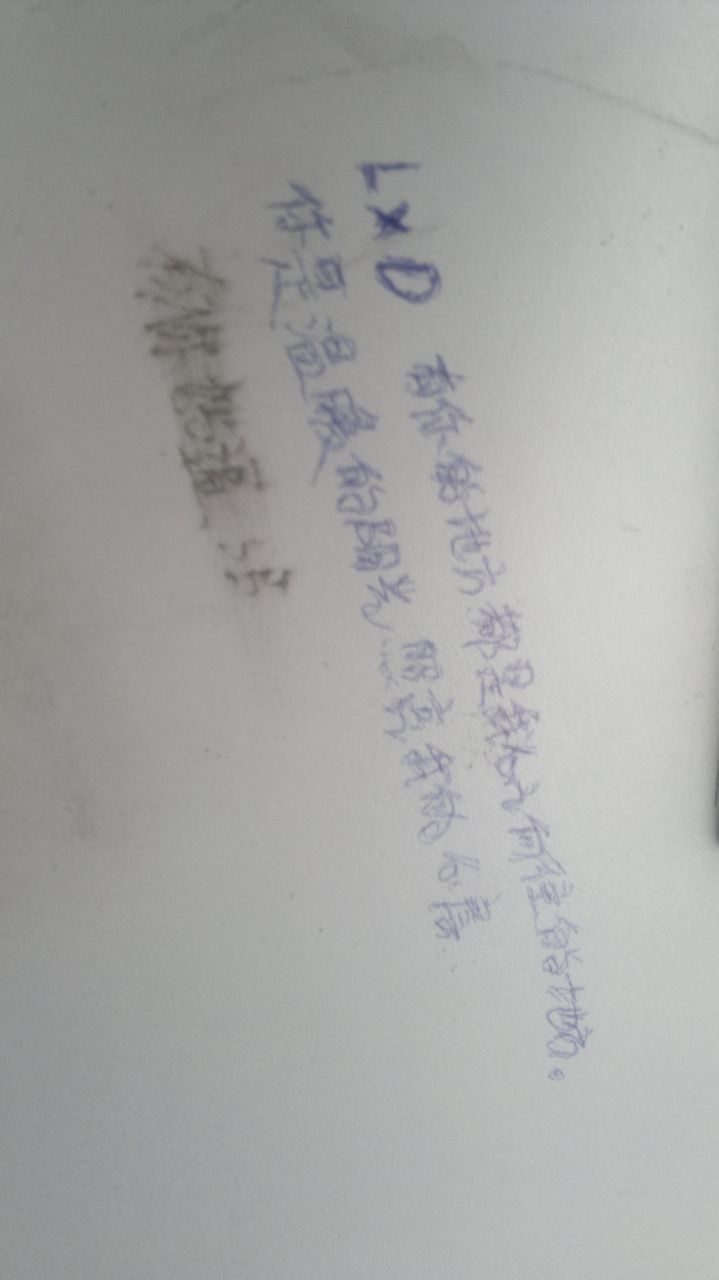 L×D
有你的地方都是我心之所往的地方。
你是温暖的阳光照亮我的心房